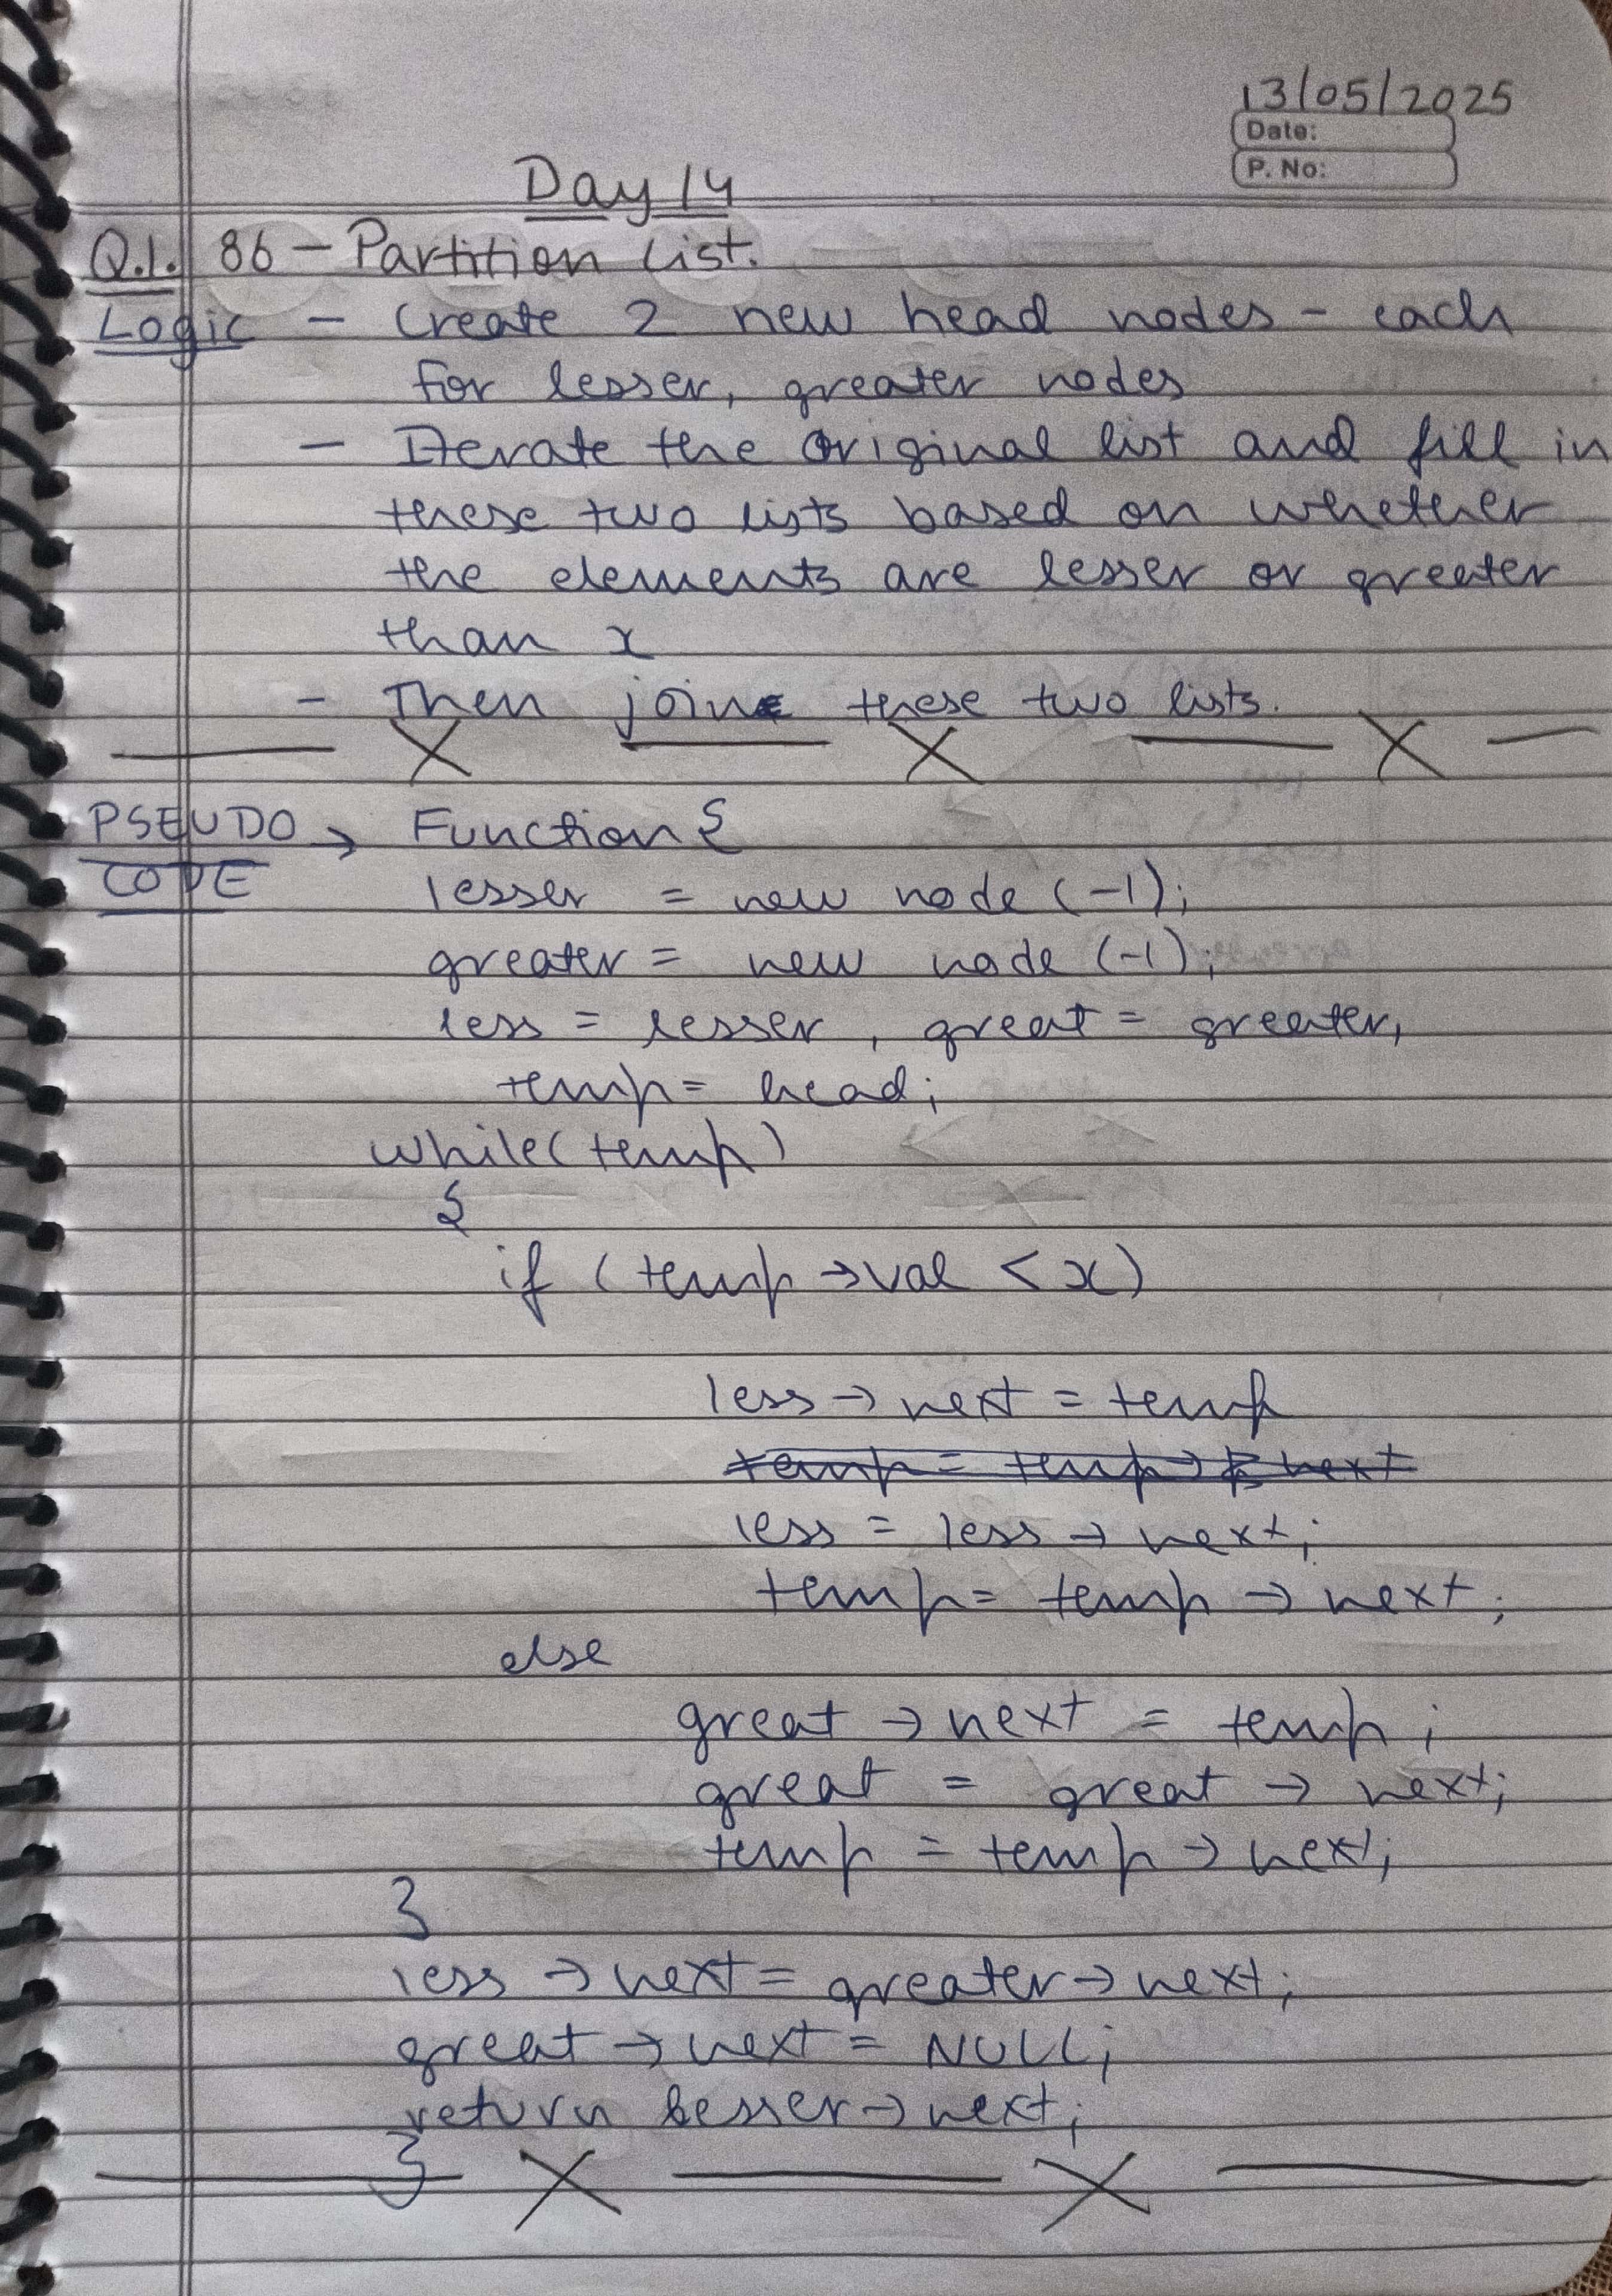 13/05/2025
Date:
P. No:
Day 14
Q.1. 86 - Partition List.
Logic - Create 2 new head nodes - each
for lesser, greater nodes
- Iterate the original list and fill in
these two lists based on whether
the elements are lesser or greater
than x
- Then join these two lists.
PSEUDO CODE → Function {
lesser = new node (-1);
greater = new node (-1);
less = lesser, great = greater,
temp = head;
while(temp)
{
if (temp → val < x)
less → next = temp
temp = temp → next
less = less → next;
temp = temp → next;
else
great → next = temp;
great = great → next;
temp = temp → next;
}
less → next = greater → next;
great → next = NULL;
return lesser → next;
}